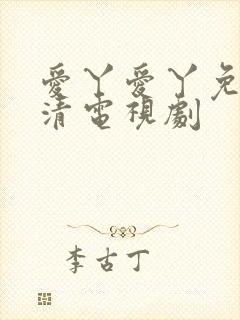 愛丫愛丫免
清電視劇
李古丁